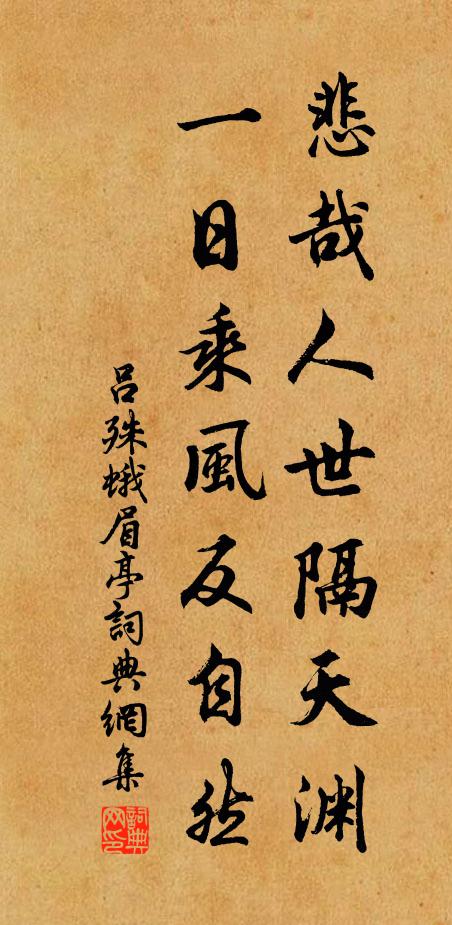 悲哉人世隔天渊
一日乘風反自然
吕殊蛾眉亭詞典網集
詞典网印